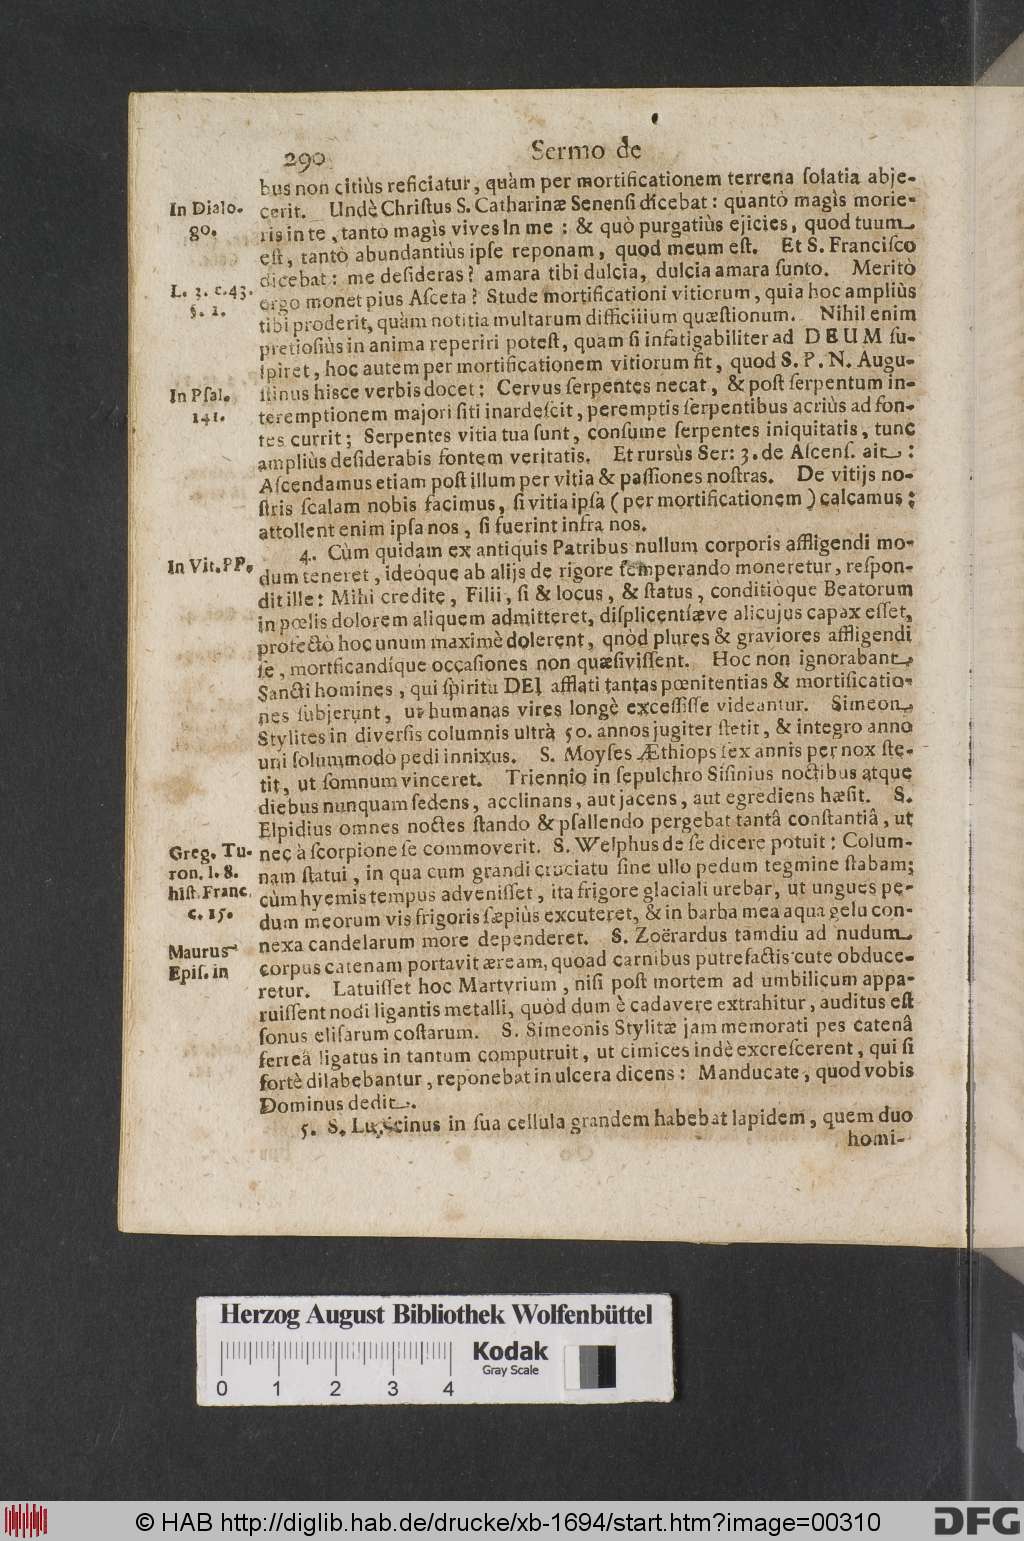 290 Sermo de
bus non citiùs reficiatur, quàm per mortificationem terrena ſolatia abje-
In Dialo-
go.
cerit. Undè Chriſtus S. Catharinæ Senenſi dicebat: quantò magìs morie-
ris in te, tanto magis vives In me: & quò purgatiùs ejicies, quod tuum
eſt, tantò abundantiùs ipſe reponam, quod meum eſt. Et S. Franciſco
dicebat: me deſideras? amara tibi dulcia, dulcia amara ſunto. Meritò
L. 3. c. 43.
§. 1.
ergo monet pius Aſceta? Stude mortificationi vitiorum, quia hoc ampliùs
tibi proderit, quàm notitia multarum difficilium quæſtionum. Nihil enim
pretioſiùs in anima reperiri poteſt, quam ſi infatigabiliter ad DEUM ſu-
ſpiret, hoc autem per mortificationem vitiorum fit, quod S. P. N. Augu-
In Pſal.
141.
ſtinus hisce verbis docet: Cervus ſerpentes necat, & poſt ſerpentum in-
teremptionem majori ſiti inardeſcit, peremptis ſerpentibus acriùs ad fon-
tes currit; Serpentes vitia tua ſunt, conſume ſerpentes iniquitatis, tunc
ampliùs deſiderabis fontem veritatis. Et rursùs Ser: 3. de Aſcenſ. ait:
Aſcendamus etiam poſt illum per vitia & paſſiones noſtras. De vitijs no-
ſtris ſcalam nobis facimus, ſi vitia ipſa (per mortificationem) calcamus;
attollent enim ipſa nos, ſi fuerint infra nos.
In Vit. PP.
4. Cùm quidam ex antiquis Patribus nullum corporis affligendi mo-
dum teneret, ideóque ab alijs de rigore temperando moneretur, reſpon-
dit ille: Mihi credite, Filii, ſi & locus, & ſtatus, conditióque Beatorum
in pœlis dolorem aliquem admitteret, diſplicentiæve alicujus capax eſſet,
profectò hoc unum maximè dolerent, quòd plures & graviores affligendi
ſe, mortficandíque occaſiones non quæſiviſſent. Hoc non ignorabant
Sancti homines, qui ſpiritu DEI afflati tantas pœnitentias & mortificatio-
nes ſubjerunt, ut humanas vires longè exceſſiſſe videantur. Simeon
Stylites in diverſis columnis ultrà 50. annos jugiter ſtetit, & integro anno
uni ſolummodo pedi innixus. S. Moyſes Æthiops ſex annis per nox ſte-
tit, ut ſomnum vinceret. Triennio in ſepulchro Siſinius noctibus atque
diebus nunquam ſedens, acclinans, aut jacens, aut egrediens hæſit. S.
Elpidius omnes noctes ſtando & pſallendo pergebat tantâ conſtantiâ, ut
Greg. Tu-
ron. l. 8.
hiſt. Franc.
c. 15.
nec à ſcorpione ſe commoverit. S. Welphus de ſe dicere potuit: Colum-
nam ſtatui, in qua cum grandi cruciatu ſine ullo pedum tegmine ſtabam;
cùm hyemis tempus adveniſſet, ita frigore glaciali urebar, ut ungues pe-
dum meorum vis frigoris ſæpiùs excuteret, & in barba mea aqua gelu con-
Maurus
Epiſ. in
nexa candelarum more dependeret. S. Zoërardus tamdiu ad nudum
corpus catenam portavit æream, quoad carnibus putrefactis cute obduce-
retur. Latuiſſet hoc Martyrium, niſi poſt mortem ad umbilicum appa-
ruiſſent nodi ligantis metalli, quòd dum è cadavere extrahitur, auditus eſt
ſonus eliſarum coſtarum. S. Simeonis Stylitæ jam memorati pes catenâ
ferreâ ligatus in tantum computruit, ut cimices indè excreſcerent, qui ſi
fortè dilabebantur, reponebat in ulcera dicens: Manducate, quod vobis
Dominus dedit.
5. S. in ſua cellula grandem habebat lapidem, quem duo
homi-
Herzog August Bibliothek Wolfenbüttel
Kodak
Gray Scale
0 1 2 3 4
© HAB http://diglib.hab.de/drucke/xb-1694/start.htm?image=00310
DFG